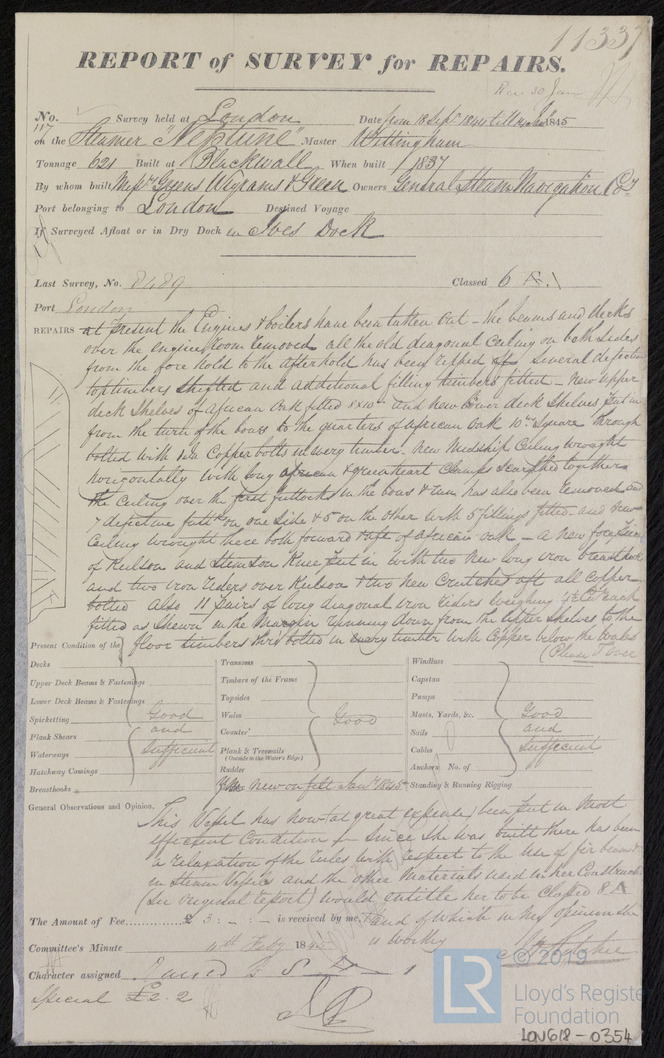 11337
REPORT of SURVEY for REPAIRS.
Rec 30 Jan
No. Survey held at London Date from 18 Sept 1844 till 1845
117
on the Steamer "Neptune" Master Wittingham
Tonnage 621 Built at Blackwall When built 1837
By whom built Messrs Greens Wigrams & Green Owners General Steam Navigation Coy
Port belonging to London Destined Voyage
If Surveyed Afloat or in Dry Dock in Ives Dock
Last Survey, No. 8489 Classed 6 A.1
Port London
REPAIRS at present the Engines & boilers have been taken out - the beams and decks
over the engine room removed all the old diagonal Ceiling on both sides
from the fore hold to the after hold has been ripped off several defective
toptimbers shifted and additional filling timbers fitted - New upper
deck shelves of African Oak fitted 8x10 and new lower deck shelves put in
from the turn of the bows to the quarters of african Oak 10 in Square through
bolted with 1 in Copper bolts in every timber. New Midship Ceiling wrought
horizontally with long african & greenheart clamps scarphed together
the Ceiling over the first futtocks in the bows & run has also been removed and
7 defective futts on one side & 5 on the other with 5 fillings fitted and new
Ceiling wrought here both forward & aft of african oak - a new fore piece
of Keelson and Stemson Knee put in with two New long iron
and two iron riders over Keelson & two new Crutches aft all Copper
bolted also 11 pairs of long diagonal iron riders weighing each
fitted as shewn in the Margin running down from the upper shelves to the
floor timbers thro bolted in every timber with Copper below the Wales
(Please turn over
Present Condition of the
Decks
Upper Deck Beams & Fastenings
Lower Deck Beams & Fastenings
Spirketting Good
Plank Shears and
Waterways Sufficient
Hatchway Comings
Breasthooks
Transoms
Timbers of the Frame
Topsides
Wales Good
Counter
Plank & Treenails
(Outside to the Water's Edge)
Rudder
New on felt Jany 1845
Windlass
Capstan
Pumps
Masts, Yards, &c. Good
Sails and
Cables Sufficient
Anchors No. of
Standing & Running Rigging
General Observations and Opinion,
This Vessel has now at great expense been put in Most
efficient Condition & Since she was built there has been
a relaxation of the Rules with respect to the use of fir beams
in Steam Vessels and the other Materials used in her Construction
(See original report) would entitle her to be Classed 8 A
The Amount of Fee............£ 3 : - : - is received by me, and of which in my opinion she
is worthy
Committee's Minute 4th Feby 1845
Character assigned 8 A 1
Special £2.2
© 2019
LR
Lloyd's Register
Foundation
LON618-0354